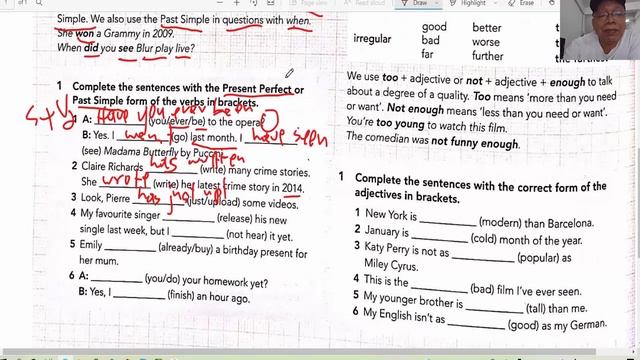 Draw
Highlight
Erase
Simple. We also use the Past Simple in questions with when.
She won a Grammy in 2009.
When did you see Blur play live?
1 Complete the sentences with the Present Perfect or
Past Simple form of the verbs in brackets.
S+V
Have you ever been
1 A: (you/ever/be) to the opera?
B: Yes. I went (go) last month. I have seen
(see) Madama Butterfly by Puccini.
2 Claire Richards has written (write) many crime stories.
She wrote (write) her latest crime story in 2014.
3 Look, Pierre has just upl (just/upload) some videos.
4 My favourite singer __________ (release) his new
single last week, but I __________ (not hear) it yet.
5 Emily __________ (already/buy) a birthday present for
her mum.
6 A: __________ (you/do) your homework yet?
B: Yes, I __________ (finish) an hour ago.
good better
irregular bad worse
far further
We use too + adjective or not + adjective + enough to talk
about a degree of quality. Too means 'more than you need
or want'. Not enough means 'less than you need or want'.
You're too young to watch this film.
The comedian was not funny enough.
1 Complete the sentences with the correct form of the
adjectives in brackets.
1 New York is __________ (modern) than Barcelona.
2 January is __________ (cold) month of the year.
3 Katy Perry is not as __________ (popular) as
Miley Cyrus.
4 This is the __________ (bad) film I've ever seen.
5 My younger brother is __________ (tall) than me.
6 My English isn't as __________ (good) as my German.